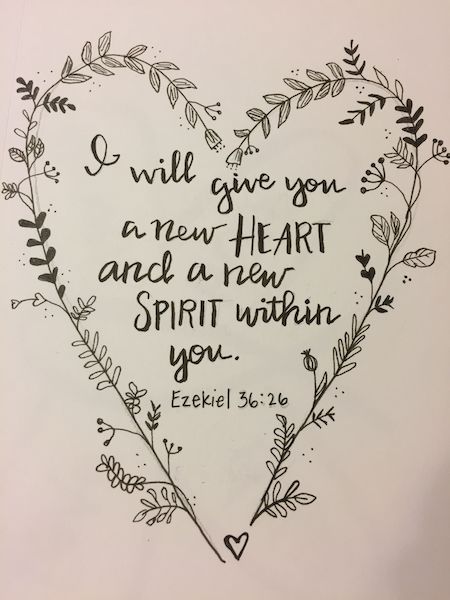 I will give you
a new HEART
and a new
SPIRIT within
you.
Ezekiel 36:26